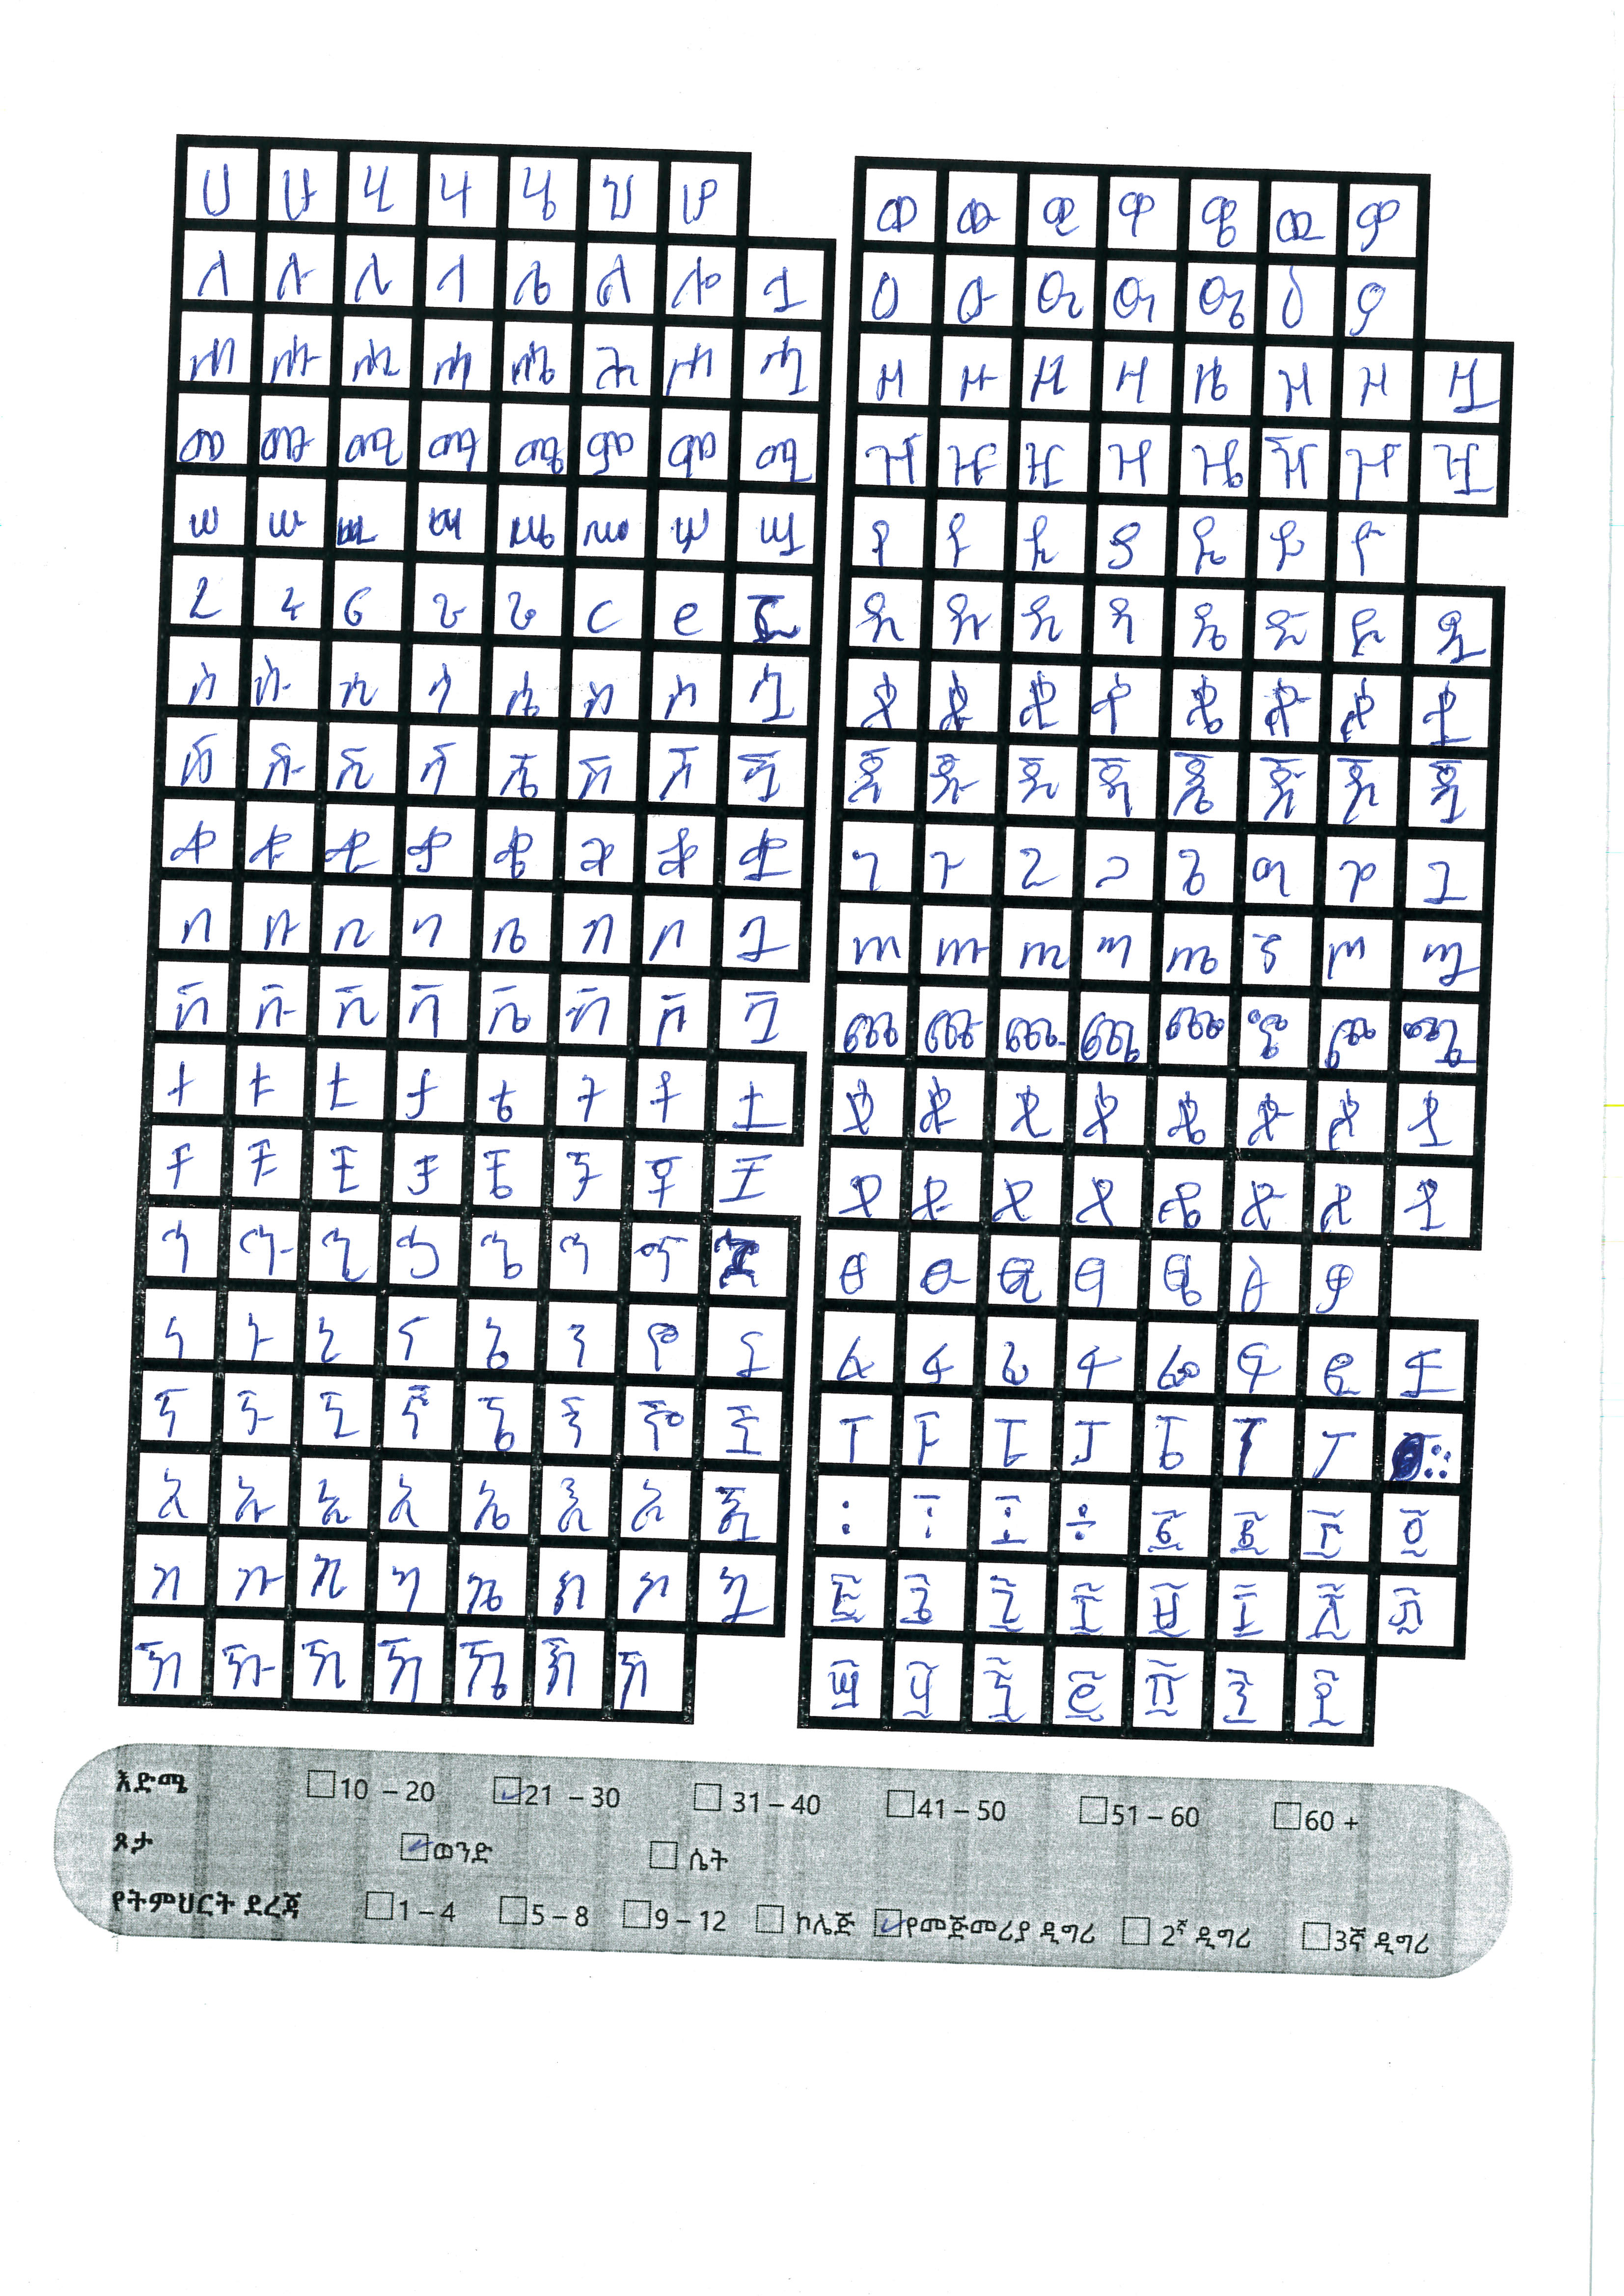 ሀ ሁ ሂ ሃ ሄ ህ ሆ
ለ ሉ ሊ ላ ሌ ል ሎ ሏ
ሐ ሑ ሒ ሓ ሔ ሕ ሖ ሗ
መ ሙ ሚ ማ ሜ ም ሞ ሟ
ሠ ሡ ሢ ሣ ሤ ሥ ሦ ሧ
ረ ሩ ሪ ራ ሬ ር ሮ ሯ
ሰ ሱ ሲ ሳ ሴ ስ ሶ ሷ
ሸ ሹ ሺ ሻ ሼ ሽ ሾ ሿ
ቀ ቁ ቂ ቃ ቄ ቅ ቆ ቋ
በ ቡ ቢ ባ ቤ ብ ቦ ቧ
ቨ ቩ ቪ ቫ ቬ ቭ ቮ ቯ
ተ ቱ ቲ ታ ቴ ት ቶ ቷ
ቸ ቹ ቺ ቻ ቼ ች ቾ ቿ
ኀ ኁ ኂ ኃ ኄ ኅ ኆ
ነ ኑ ኒ ና ኔ ን ኖ ኗ
ኘ ኙ ኚ ኛ ኜ ኝ ኞ ኟ
አ ኡ ኢ ኣ ኤ እ ኦ ኧ
ከ ኩ ኪ ካ ኬ ክ ኮ ኳ
ኸ ኹ ኺ ኻ ኼ ኽ ኾ
ወ ዉ ዊ ዋ ዌ ው ዎ
ዐ ዑ ዒ ዓ ዔ ዕ ዖ
ዘ ዙ ዚ ዛ ዜ ዝ ዞ ዟ
ዠ ዡ ዢ ዣ ዤ ዥ ዦ ዧ
የ ዩ ዪ ያ ዬ ይ ዮ
ደ ዱ ዲ ዳ ዴ ድ ዶ ዷ
ጀ ጁ ጂ ጃ ጄ ጅ ጆ ጇ
ገ ጉ ጊ ጋ ጌ ግ ጎ ጓ
ጠ ጡ ጢ ጣ ጤ ጥ ጦ ጧ
ጨ ጩ ጪ ጫ ጬ ጭ ጮ ጯ
ጰ ጱ ጲ ጳ ጴ ጵ ጶ ጷ
ጸ ጹ ጺ ጻ ጼ ጽ ጾ ጿ
ፀ ፁ ፂ ፃ ፄ ፅ ፆ
ፈ ፉ ፊ ፋ ፌ ፍ ፎ ፏ
ፐ ፑ ፒ ፓ ፔ ፕ ፖ ።
፩ ፪ ፫ ፬
፭ ፮ ፯ ፰ ፱ ፲ ፳ ፴
፵ ፶ ፷ ፸ ፹ ፺ ፻
እድሜ 10 – 20 21 – 30 31 – 40 41 – 50 51 – 60 60 +
ጾታ ወንድ ሴት
የትምህርት ደረጃ 1 – 4 5 – 8 9 – 12 ኮሌጅ የመጅመሪያ ዲግሪ 2ኛ ዲግሪ 3ኛ ዲግሪ